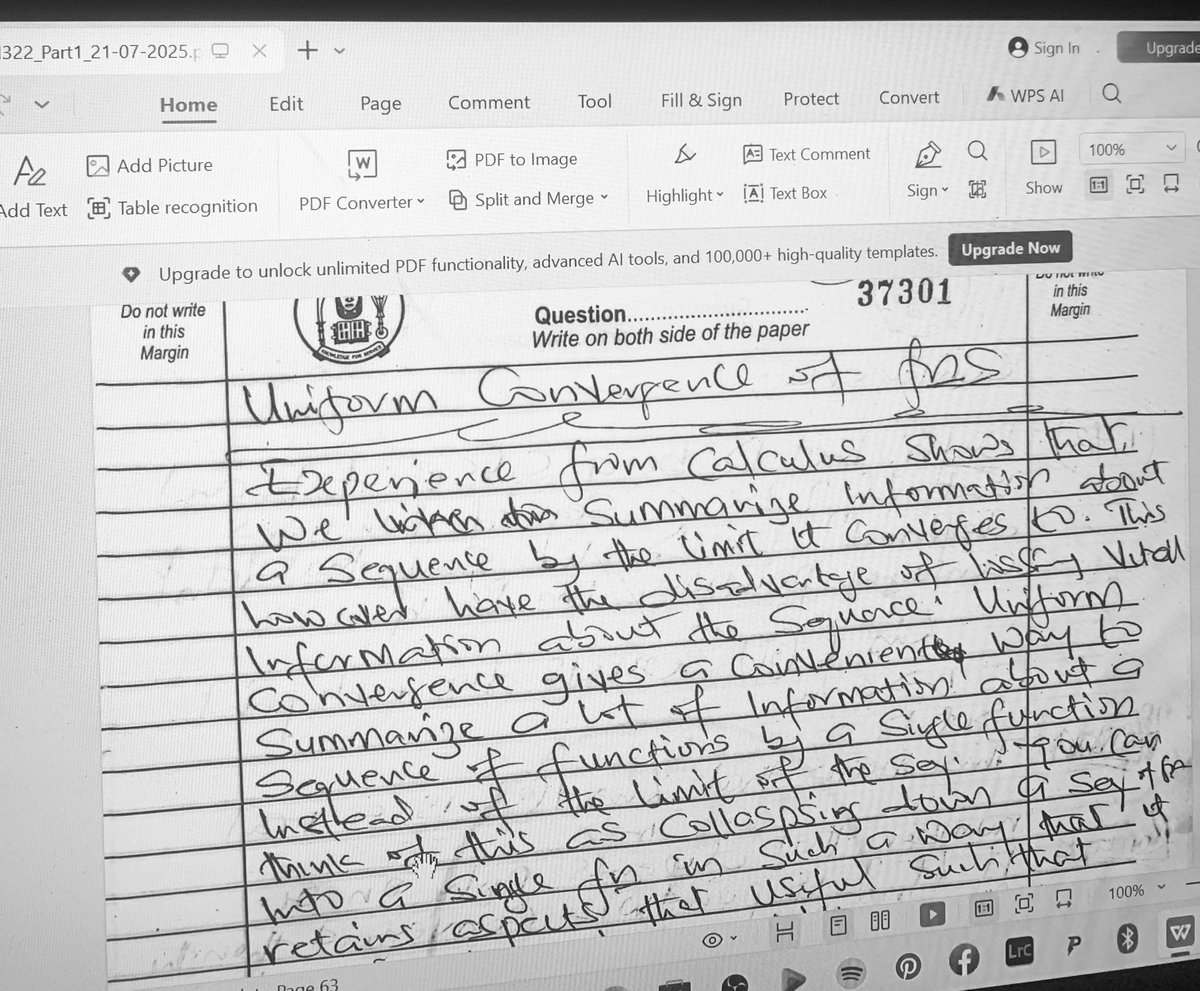 322_Part1_21-07-2025.p
Sign In
Upgrade
Home Edit Page Comment Tool Fill & Sign Protect Convert WPS AI
Add Picture PDF to Image Text Comment 100%
Add Text Table recognition PDF Converter Split and Merge Highlight Text Box Sign Show 1:1
Upgrade to unlock unlimited PDF functionality, advanced AI tools, and 100,000+ high-quality templates. Upgrade Now
Do not write
in this
Margin
KNOWLEDGE FOR SERVICE
Question
Write on both side of the paper
37301
in this
Margin
Uniform Convergence of fns
Experience from Calculus Shows that,
We Summarize Information about
a Sequence by the limit it Converges to. This
however have the disadvantage of Vitall
Information about the Sequence. Uniform
Convergence gives a Convenient way to
Summarize a lot of Information about a
Sequence of functions by a Single function
Instead of the limit of the Seq. you can
think of this as Collaspsing down a Seq of fn
Into a Single fn in Such a way that it
retains aspects that useful Such that
100%
1:1
Page 63
LrC